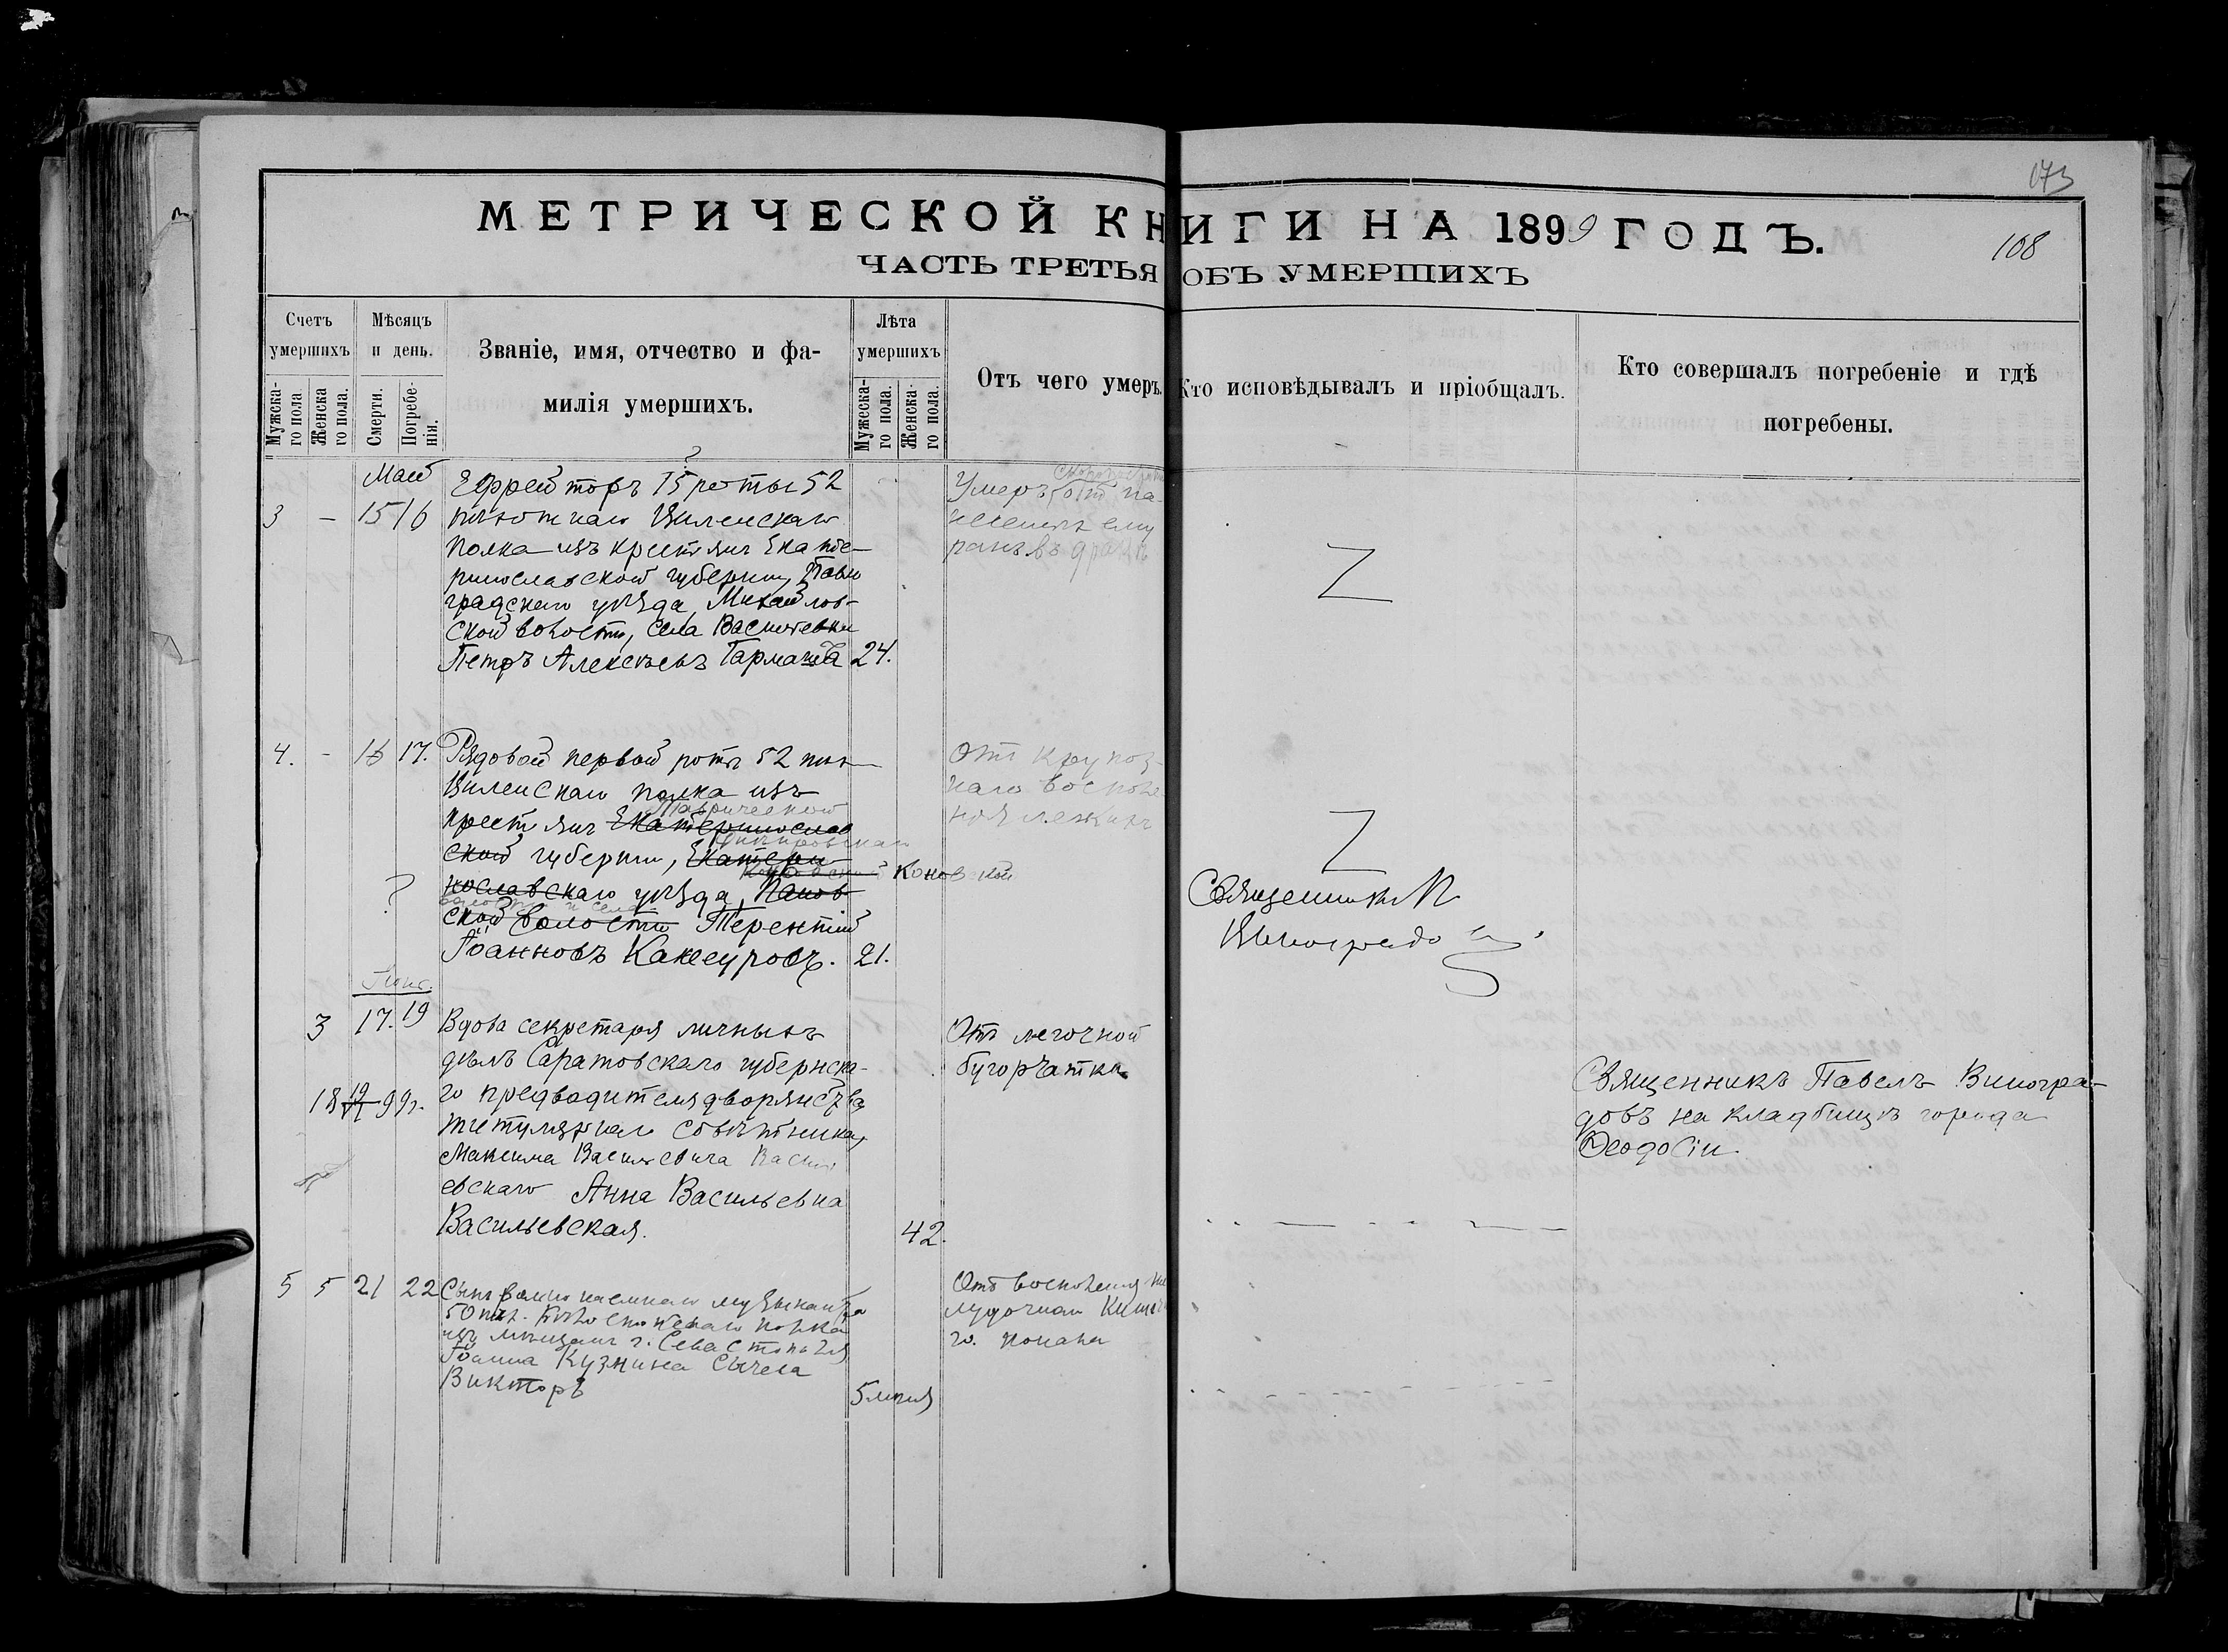 173
МЕТРИЧЕСКОЙ КНИГИ НА 1899 ГОДЪ.
108
ЧАСТЬ ТРЕТЬЯ ОБЪ УМЕРШИХЪ
Счетъ умершихъ
Мужска-го пола
Женска го пола.
Мѣсяцъ и день.
Смерти.
Погребе-нія.
Званіе, имя, отчество и фа-
милія умершихъ.
Лѣта умершихъ
Мужеска-го пола.
Женска-го пола.
Отъ чего умеръ.
Кто исповѣдывалъ и пріобщалъ.
Кто совершалъ погребеніе и гдѣ
погребены.
Май
3 - 15 16
?
Ефрейторъ 15 роты 52
пѣхотнаго Виленскаго
полка изъ крестьянъ Екате-
ринославской губерніи, Павло
градскаго уѣзда, Михайлов-
ской волости, села Васильевки
Петръ Алексѣевъ Гармаша 24.
Умеръ отъ на-
несенныхъ ему
ранъ въ дракѣ
4. - 16 17.
Рядовой первой роты 52 пѣх
Виленскаго полка изъ
Таврической
крестьянъ Екатеринослав
ской губерніи, Екатери
Коновской
?
нославскаго уѣзда, Панов
волости и села
ской волости Терентій
Іоанновъ Кажсуровъ. 21.
Отъ крупоз-
наго воспале
нія легкихъ
Священникъ П
Виноградо
Іюнь.
3 17. 19
Вдова секретаря личныхъ
дѣлъ Саратовскаго губернска-
18 19/VI 99г.
го предводителя дворянства,
титулярнаго совѣтника,
Максима Васильевича Василь
евскаго Анна Васильевна
Васильевская. 42.
Отъ легочной
бугорчатки
Священникъ Павелъ Виногра-
довъ на кладбищѣ города
Ѳеодосіи
5 5 21 22
Сынъ вольнонаемнаго музыканта
50 пѣх. Бѣлостокскаго полка
изъ мѣщанъ г. Севастополя
Іоанна Кузмина Сычева
Викторъ
Отъ воспаленія же
лудочнаго кишеч
го. канала